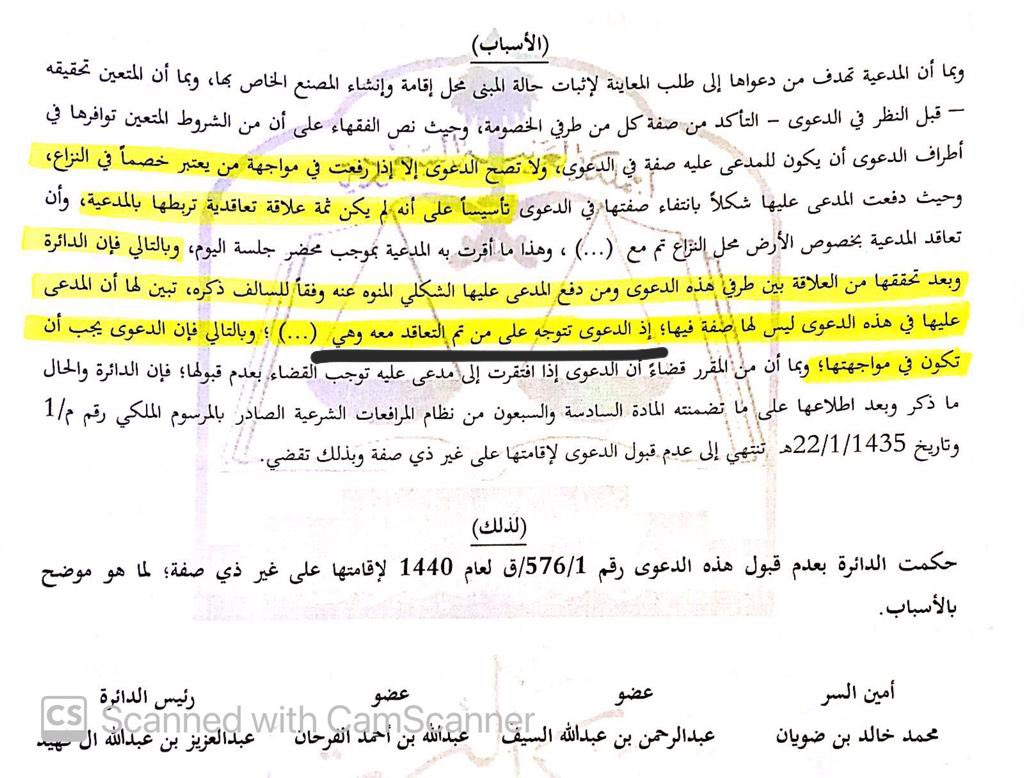 (الأسباب)
وبما أن المدعية تهدف من دعواها إلى طلب المعاينة لإثبات حالة المبنى محل إقامة وإنشاء المصنع الخاص بها، وبما أن المتعين تحقيقه
– قبل النظر في الدعوى – التأكد من صفة كل من طرفي الخصومة، وحيث نص الفقهاء على أن من الشروط المتعين توافرها في
أطراف الدعوى أن يكون للمدعى عليه صفة في الدعوى، ولا تصح الدعوى إلا إذا رفعت في مواجهة من يعتبر خصماً في النزاع،
وحيث دفعت المدعى عليها شكلاً بانتفاء صفتها في الدعوى تأسيساً على أنه لم يكن ثمة علاقة تعاقدية تربطها بالمدعية، وأن
تعاقد المدعية بخصوص الأرض محل النزاع تم مع (...) ، وهذا ما أقرت به المدعية بموجب محضر جلسة اليوم، وبالتالي فإن الدائرة
وبعد تحققها من العلاقة بين طرفي هذه الدعوى ومن دفع المدعى عليها الشكلي المنوه عنه وفقاً للسالف ذكره، تبين لها أن المدعى
عليها في هذه الدعوى ليس لها صفة فيها؛ إذ الدعوى تتوجه على من تم التعاقد معه وهي (...) ؛ وبالتالي فإن الدعوى يجب أن
تكون في مواجهتها؛ وبما أن من المقرر قضاءً أن الدعوى إذا افتقرت إلى مدعى عليه توجب القضاء بعدم قبولها؛ فإن الدائرة والحال
ما ذكر وبعد اطلاعها على ما تضمنته المادة السادسة والسبعون من نظام المرافعات الشرعية الصادر بالمرسوم الملكي رقم م/1
وتاريخ 22/1/1435هـ تنتهي إلى عدم قبول الدعوى لإقامتها على غير ذي صفة وبذلك تقضي.
(لذلك)
حكمت الدائرة بعدم قبول هذه الدعوى رقم 576/1/ق لعام 1440 لإقامتها على غير ذي صفة؛ لما هو موضح
بالأسباب.
أمين السر عضو عضو رئيس الدائرة
محمد خالد بن ضويان عبدالرحمن بن عبدالله السيف عبدالله بن أحمد الفرحان عبدالعزيز بن عبدالله ال
CS Scanned with CamScanner